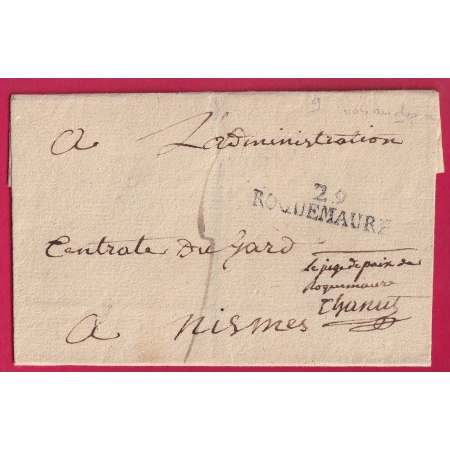 a L'administration
29
ROQUEMAURE
Centrale Du Gard
Le juge de paix de
Roquemaure
a nismes